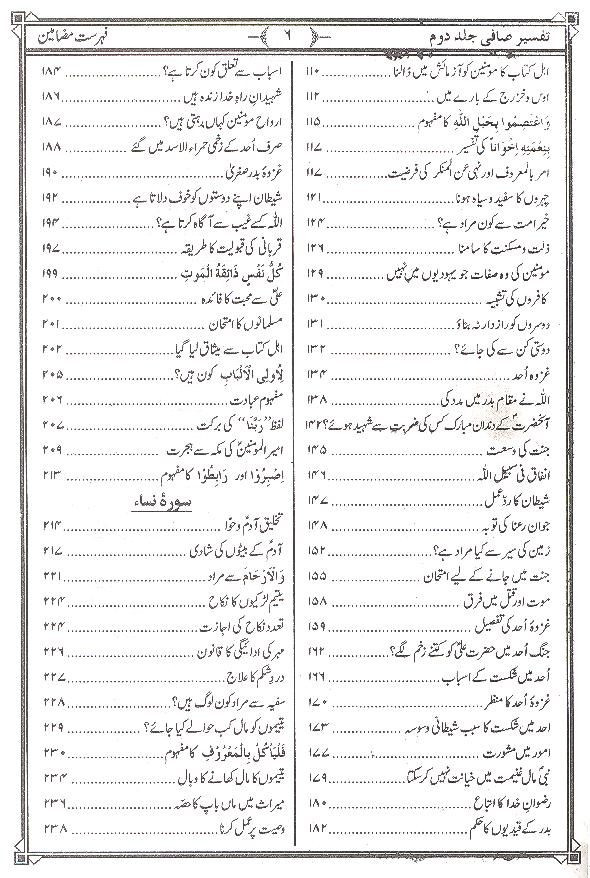 تفسیر صافی جلد دوم
﴿ ۶ ﴾
فہرست مضامین
اہل کتاب کا مومنین کو آزمائش میں ڈالنا ۱۱۰
اوس و خزرج کے بارے میں ۱۱۲
وَاعْتَصِمُوا بِحَبْلِ اللهِ کا مفہوم ۱۱۵
بِنِعْمَتِهٖ اِخْوَانًا کی تفسیر ۱۱۷
امر بالمعروف اور نہی عن المنکر کی فرضیت ۱۱۷
چہروں کا سفید و سیاہ ہونا ۱۲۱
خیر امت سے کون مراد ہے؟ ۱۲۴
ذلت و مسکنت کا سامنا ۱۲۶
مومنین کی وہ صفات جو یہودیوں میں نہیں ۱۲۹
کافروں کی تشبیہ ۱۳۰
دوسروں کو رازدار نہ بناؤ ۱۳۱
دوستی کن سے کی جائے؟ ۱۳۲
غزوہ احد ۱۳۴
اللہ نے مقام بدر میں مدد کی ۱۳۸
آنحضرتؐ کے دندان مبارک کس کی ضربت سے شہید ہوئے؟ ۱۴۲
جنت کی وسعت ۱۴۵
انفاق فی سبیل اللہ ۱۴۶
شیطان کا ردِّ عمل ۱۴۷
جوان رعنا کی توبہ ۱۴۸
زمین کی سیر سے کیا مراد ہے؟ ۱۵۲
جنت میں جانے کے لیے امتحان ۱۵۵
موت اور قتل میں فرق ۱۵۸
غزوۂ احد کی تفصیل ۱۵۹
جنگ اُحد میں حضرت علیؑ کو کتنے زخم لگے؟ ۱۶۲
اُحد میں شکست کے اسباب ۱۶۶
غزوۂ اُحد کا منظر ۱۷۰
احد میں شکست کا سبب شیطانی وسوسہ ۱۷۳
امور میں مشورت ۱۷۷
نبیؐ مال غنیمت میں خیانت نہیں کرسکتا ۱۷۹
رضوانِ خدا کا اتباع ۱۸۰
بدر کے قیدیوں کا حکم ۱۸۲
اسباب سے تعلق کون کرتا ہے؟ ۱۸۴
شہیدانِ راہِ خدا زندہ ہیں ۱۸۶
ارواح مومنین کہاں رہتی ہیں؟ ۱۸۷
صرف اُحد کے زخمی حمراء الاسد میں گئے ۱۸۸
غزوۂ بدر صغریٰ ۱۹۰
شیطان اپنے دوستوں کو خوف دلاتا ہے ۱۹۲
اللہ کسے غیب سے آگاہ کرتا ہے؟ ۱۹۴
قربانی کی قبولیت کا طریقہ ۱۹۷
كُلُّ نَفْسٍ ذَائِقَةُ الْمَوْتِ ۱۹۹
علیؑ سے محبت کا فائدہ ۲۰۰
مسلمانوں کا امتحان ۲۰۱
اہل کتاب سے میثاق لیا گیا ۲۰۲
لِاُولِی الْاَلْبَابِ کون ہیں؟ ۲۰۵
مفہوم عبادت ۲۰۶
لفظ ”رَبَّنَا“ کی برکت ۲۰۷
امیر المومنینؑ کی مکہ سے ہجرت ۲۰۹
اِصْبِرُوْا اور رَابِطُوْا کا مفہوم ۲۱۳
سورۂ نساء
تخلیق آدمؑ و حوّا ۲۱۴
آدمؑ کے بیٹوں کی شادی ۲۱۷
وَالْاَرْحَامَ سے مراد ۲۲۱
یتیم لڑکیوں کا نکاح ۲۲۴
تعدد نکاح کی اجازت ۲۲۴
مہر کی ادائیگی کا قانون ۲۲۶
دردِ شکم کا علاج ۲۲۷
سفیہ سے مراد کون لوگ ہیں؟ ۲۲۸
یتیموں کو مال کب حوالے کیا جائے؟ ۲۲۹
فَلْیَاْکُلْ بِالْمَعْرُوْفِ کا مفہوم ۲۳۰
یتیموں کا مال کھانے کا وبال ۲۳۴
میراث میں ماں باپ کا حصّہ ۲۳۶
وصیت پر عمل کرنا ۲۳۸